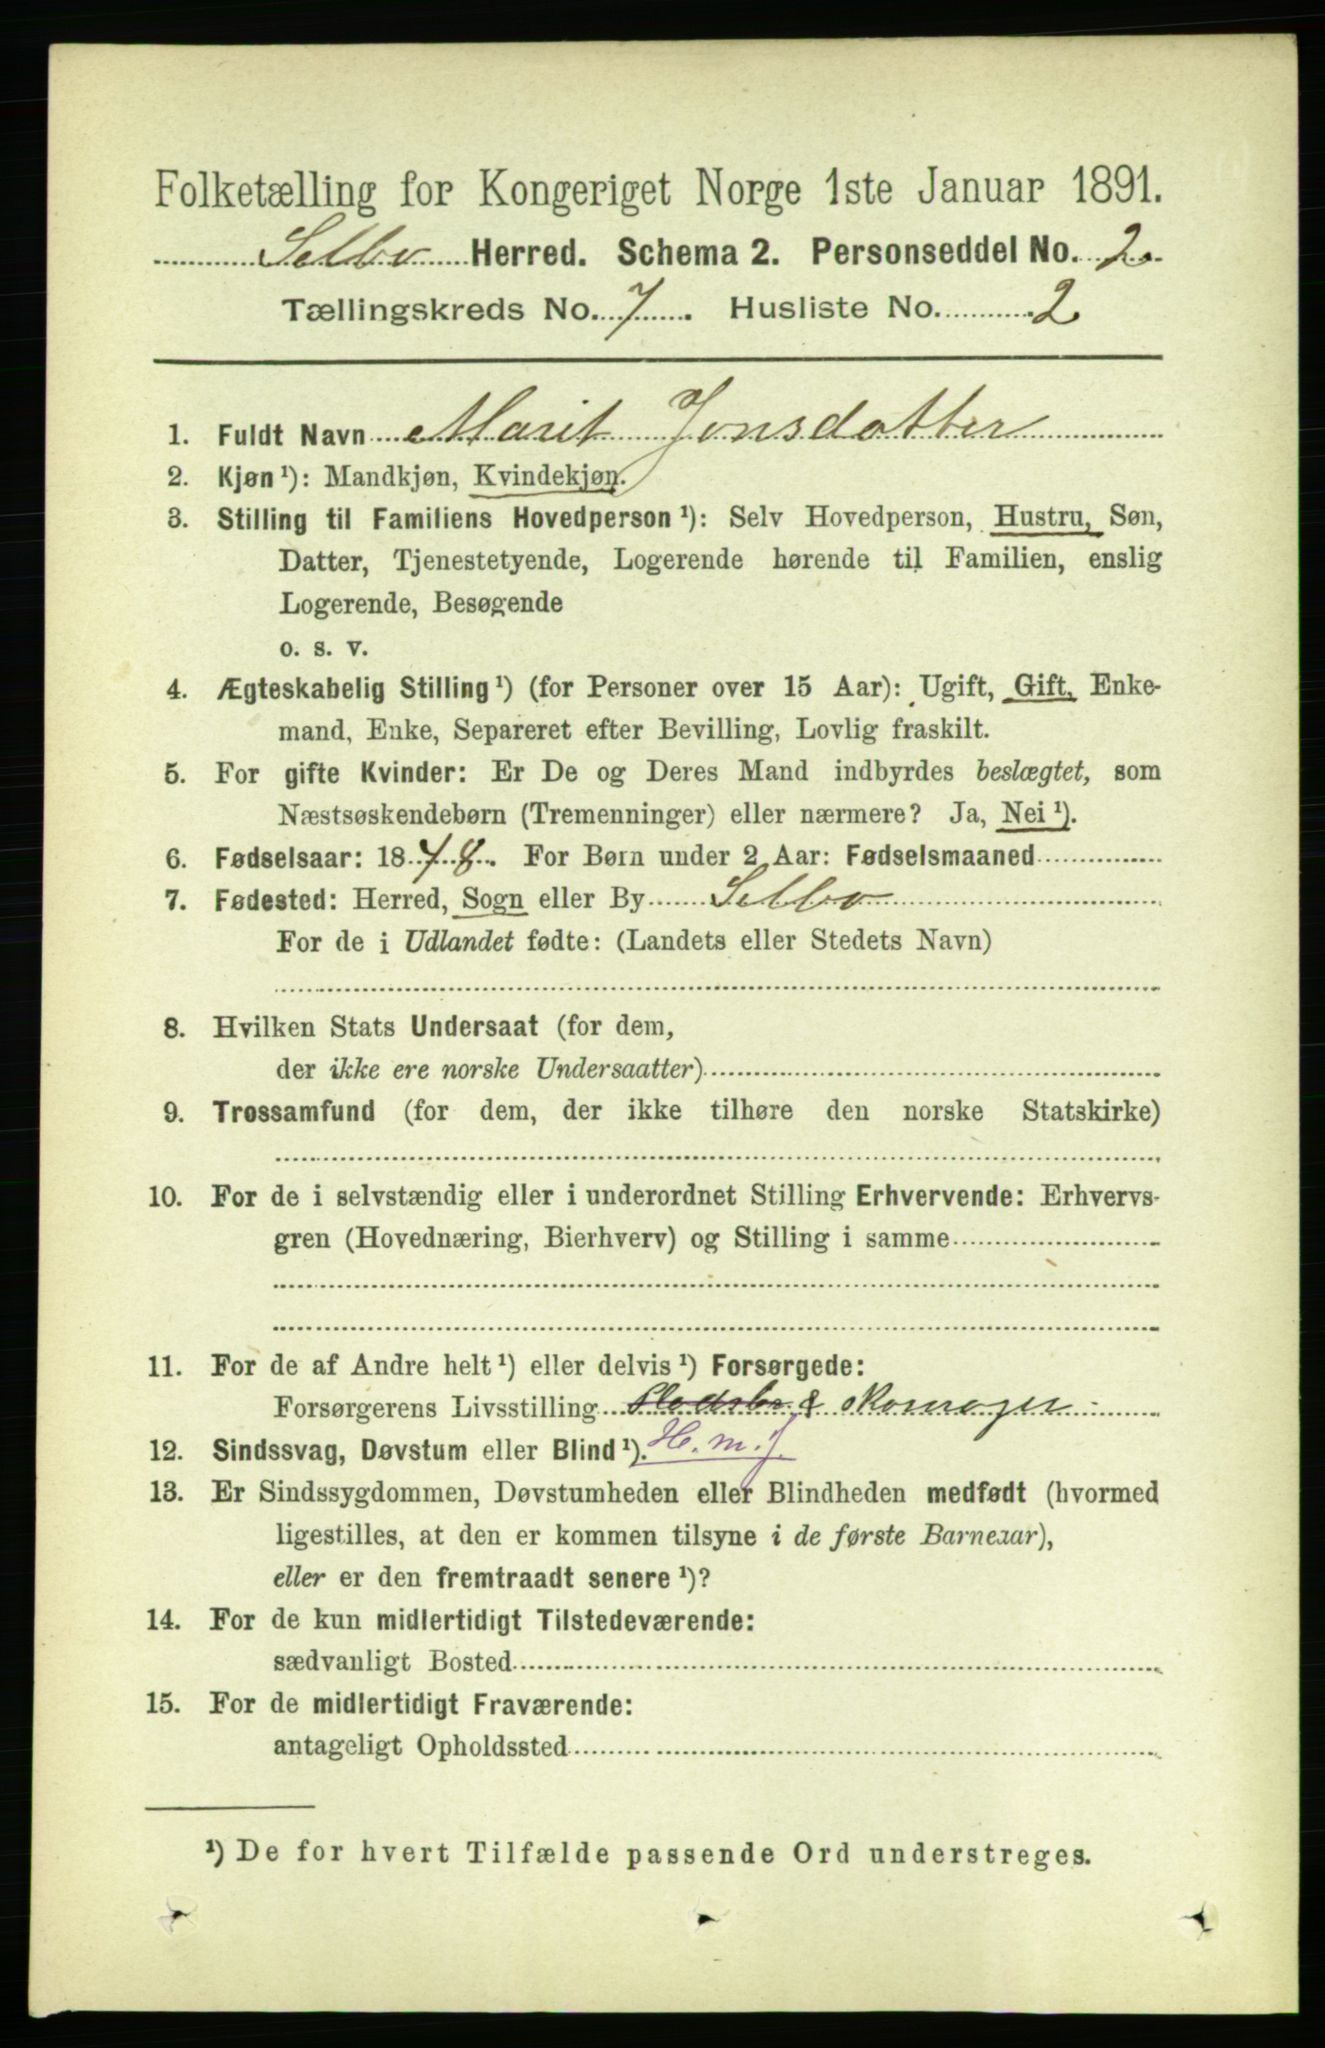 Folketælling for Kongeriget Norge 1ste Januar 1891.
Selbo Herred. Schema 2. Personseddel No. 2.
Tællingskreds No. 7. Husliste No. 2
1. Fuldt Navn Marit Jonsdatter
2. Kjøn ¹): Mandkjøn, Kvindekjøn.
3. Stilling til Familiens Hovedperson ¹): Selv Hovedperson, Hustru, Søn,
Datter, Tjenestetyende, Logerende hørende til Familien, enslig
Logerende, Besøgende
o. s. v.
4. Ægteskabelig Stilling ¹) (for Personer over 15 Aar): Ugift, Gift, Enke-
mand, Enke, Separeret efter Bevilling, Lovlig fraskilt.
5. For gifte Kvinder: Er De og Deres Mand indbyrdes beslægtet, som
Næstsøskendebørn (Tremenninger) eller nærmere? Ja, Nei ¹).
6. Fødselsaar: 1848. For Børn under 2 Aar: Fødselsmaaned
7. Fødested: Herred, Sogn eller By Selbo
For de i Udlandet fødte: (Landets eller Stedets Navn)
8. Hvilken Stats Undersaat (for dem,
der ikke ere norske Undersaatter)
9. Trossamfund (for dem, der ikke tilhøre den norske Statskirke)
10. For de i selvstændig eller i underordnet Stilling Erhvervende: Erhvervs-
gren (Hovednæring, Bierhverv) og Stilling i samme
11. For de af Andre helt ¹) eller delvis ¹) Forsørgede:
Forsørgerens Livsstilling & skomager
12. Sindssvag, Døvstum eller Blind ¹). H. m. J.
13. Er Sindssygdommen, Døvstumheden eller Blindheden medfødt (hvormed
ligestilles, at den er kommen tilsyne i de første Barneaar),
eller er den fremtraadt senere ¹)?
14. For de kun midlertidigt Tilstedeværende:
sædvanligt Bosted
15. For de midlertidigt Fraværende:
antageligt Opholdssted
¹) De for hvert Tilfælde passende Ord understreges.